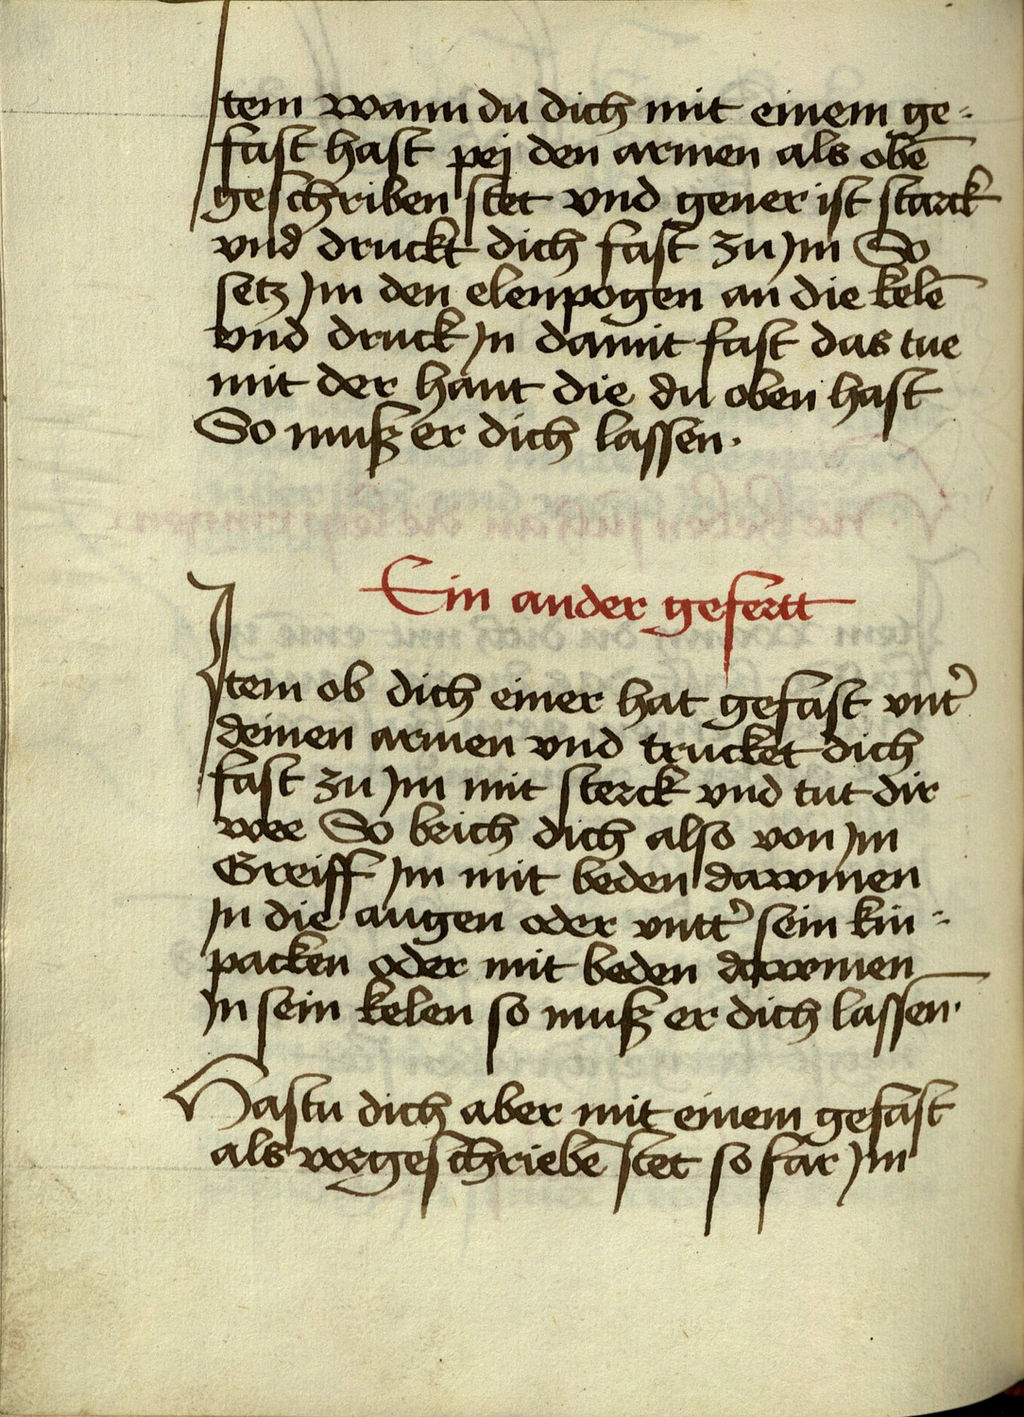 Item wann du dich mit einem ge-
fast hast pej den armen als obē
geschriben stet vnd gener ist starck
vnd druckt dich fast zu jm So
setz jm den elenpogen an die kelē
vnd druck jn damit fast das tue
mit der hant die du oben hast
So muß er dich lassen.
Ein ander gefertt
Item ob dich einer hat gefast vnt̉
deinen armen vnd trucket dich
fast zu jm mit sterck vnd tut dir
wee So brich dich also von jm
Greiff jm mit beden dawmen
jn die augen oder vntt̉ sein kin-
packen oder mit beden dawmen
jn sein kelen so muß er dich lassen.
Hastu dich aber mit einem gefast
als vorgeschriebē stet so far jm